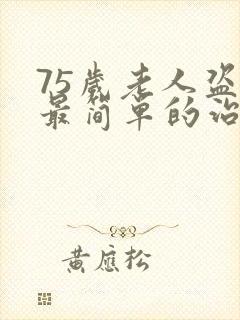 75歲老人盗
最简单的治
黄應松